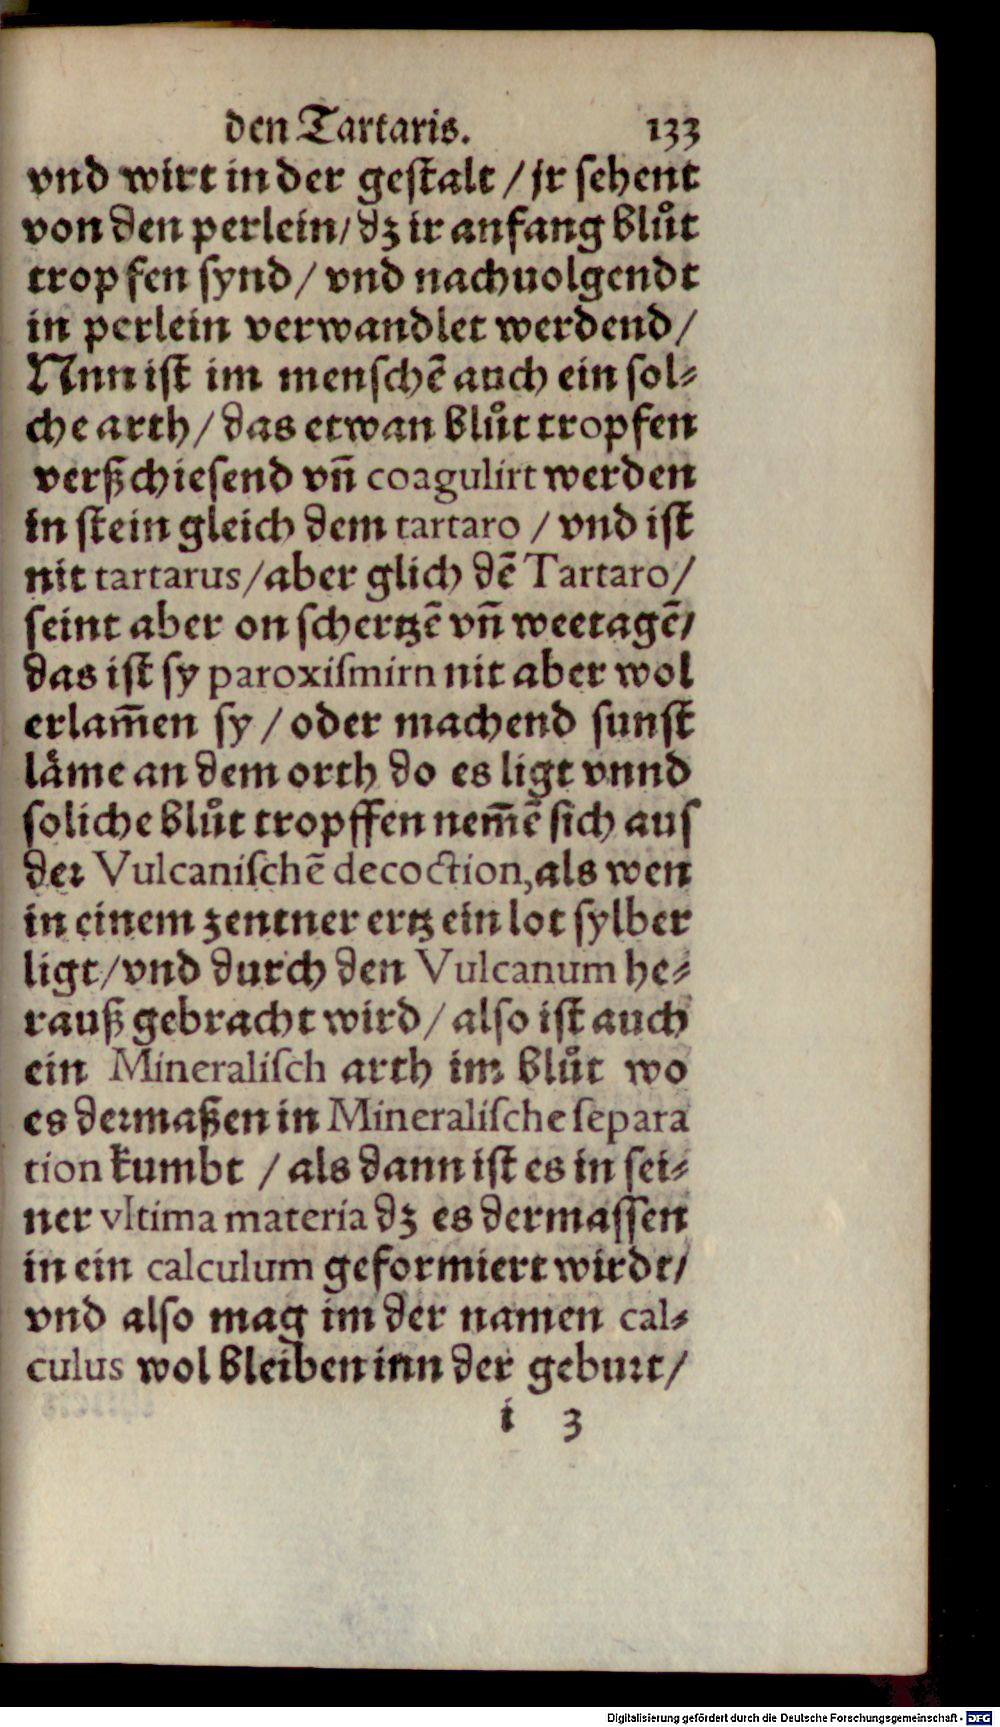 den Tartaris. 133
vnd wirt in der gestalt / jr sehent
von den perlein / dz ir anfang blůt
tropfen synd / vnd nachuolgendt
in perlein verwandlet werdend /
Nnn ist im menschē auch ein sol⸗
che arth / das etwan blůt tropfen
verßchiesend vn̄ coagulirt werden
in stein gleich dem tartaro / vnd ist
nit tartarus / aber glich dē Tartaro /
seint aber on schertzē vn̄ weetagē /
das ist sy paroxiſmirn nit aber wol
erlam̄en sy / oder machend sunst
låme an dem orth do es ligt vnnd
soliche blůt tropffen nem̄ē sich aus
der Vulcaniſchē decoction, als wen
in einem zentner ertz ein lot sylber
ligt / vnd durch den Vulcanum he⸗
rauß gebracht wird / also ist auch
ein Mineraliſch arth im blůt wo
es dermaßen in Mineraliſche ſepara
tion kumbt / als dann ist es in sei⸗
ner vltima materia dz es dermassen
in ein calculum geformiert wirdt /
vnd also mag im der namen cal⸗
culus wol bleiben inn der geburt /
i 3
Digitalisierung gefördert durch die Deutsche Forschungsgemeinschaft - DFG